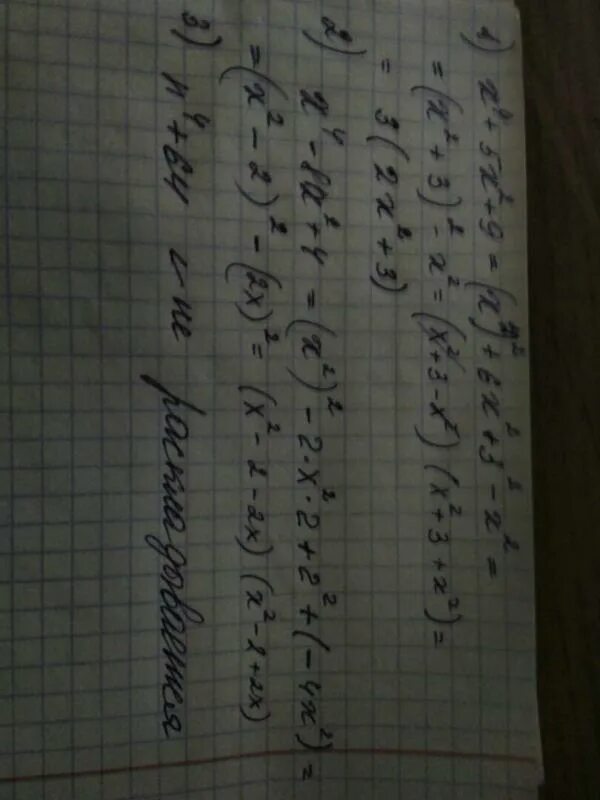 1) x⁴ + 5x² + 9 = (x²)² + 6x² + 3² - x² =
= (x² + 3)² - x² = (x² + 3 - x²) (x² + 3 + x²) =
= 3 (2x² + 3)
2) x⁴ - 8x² + 4 = (x²)² - 2·x²·2 + 2² + (-4x²) =
= (x² - 2)² - (2x)² = (x² - 2 - 2x) (x² - 2 + 2x)
3) n⁴ + 64 не